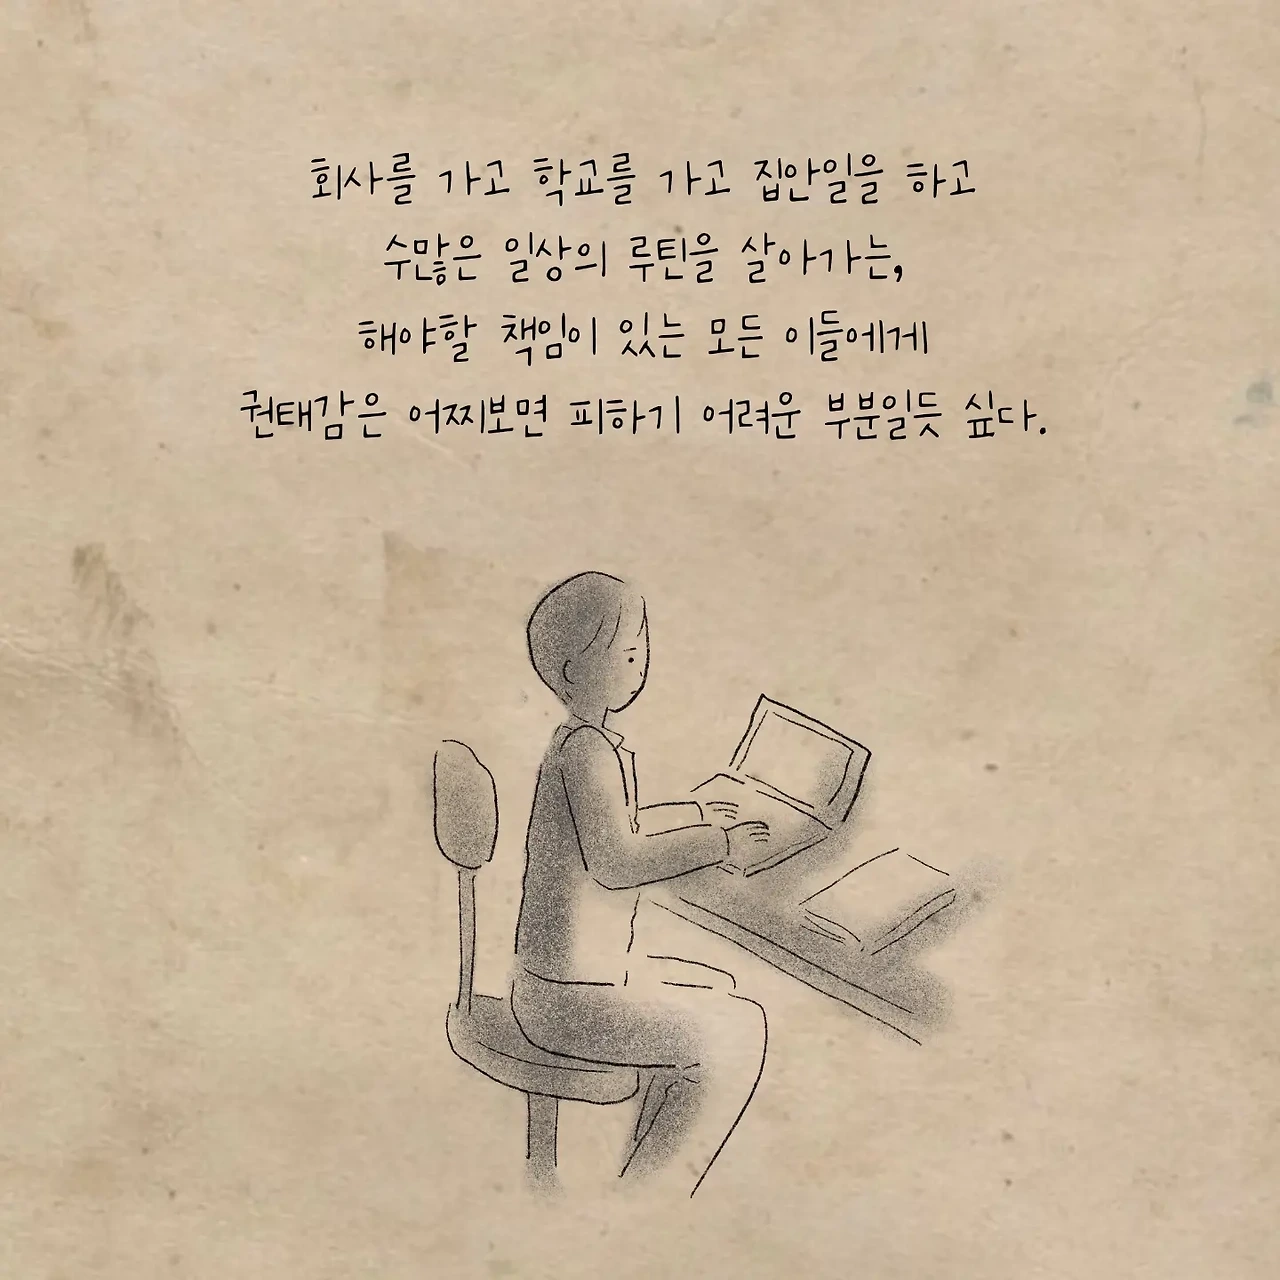 회사를 가고 학교를 가고 집안일을 하고
수많은 일상의 루틴을 살아가는,
해야할 책임이 있는 모든 이들에게
권태감은 어찌보면 피하기 어려운 부분일듯 싶다.